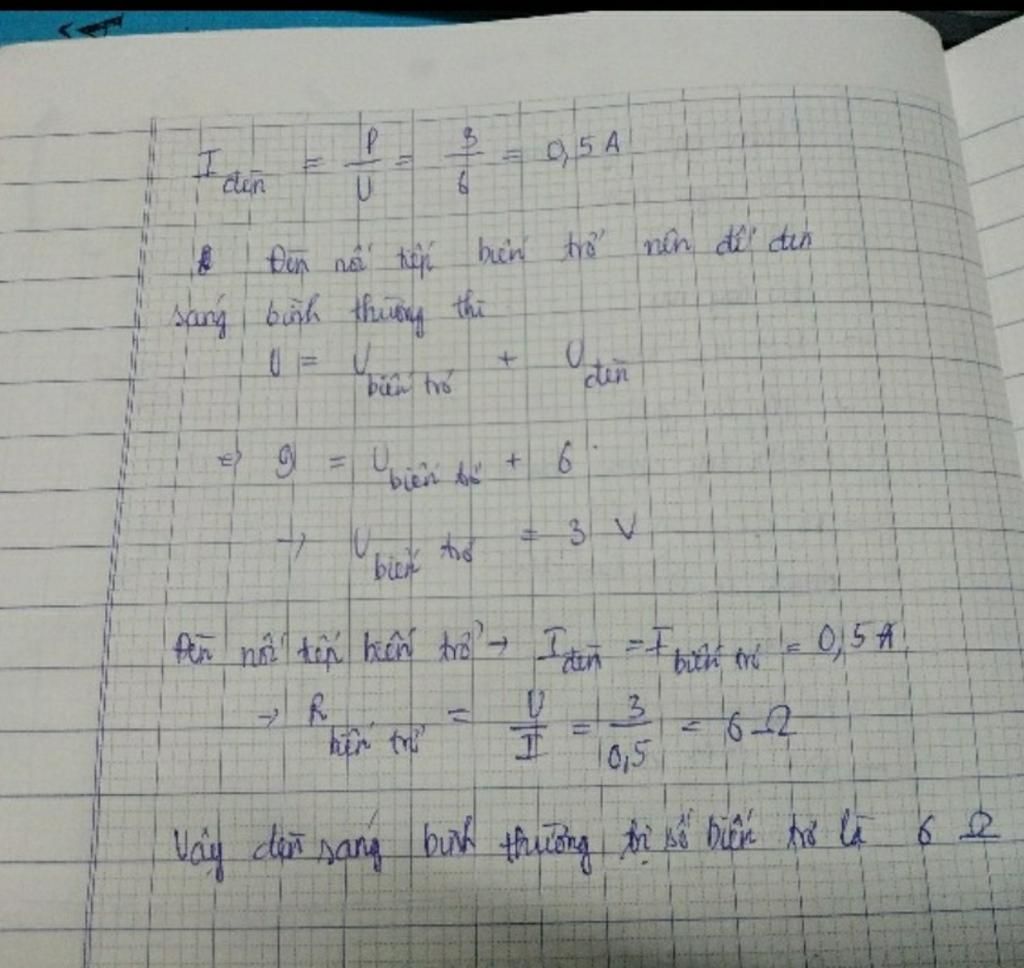 I đèn = P/U = 3/6 = 0,5 A
Đèn nối tiếp biến trở nên để đèn
sáng bình thường thì
U = U biến trở + U đèn
=> 9 = U biến trở + 6
→ U biến trở = 3 V
Đèn nối tiếp biến trở → I đèn = I biến trở = 0,5 A
→ R biến trở = U/I = 3/0,5 = 6 Ω
Vậy đèn sáng bình thường trị số biến trở là 6 Ω